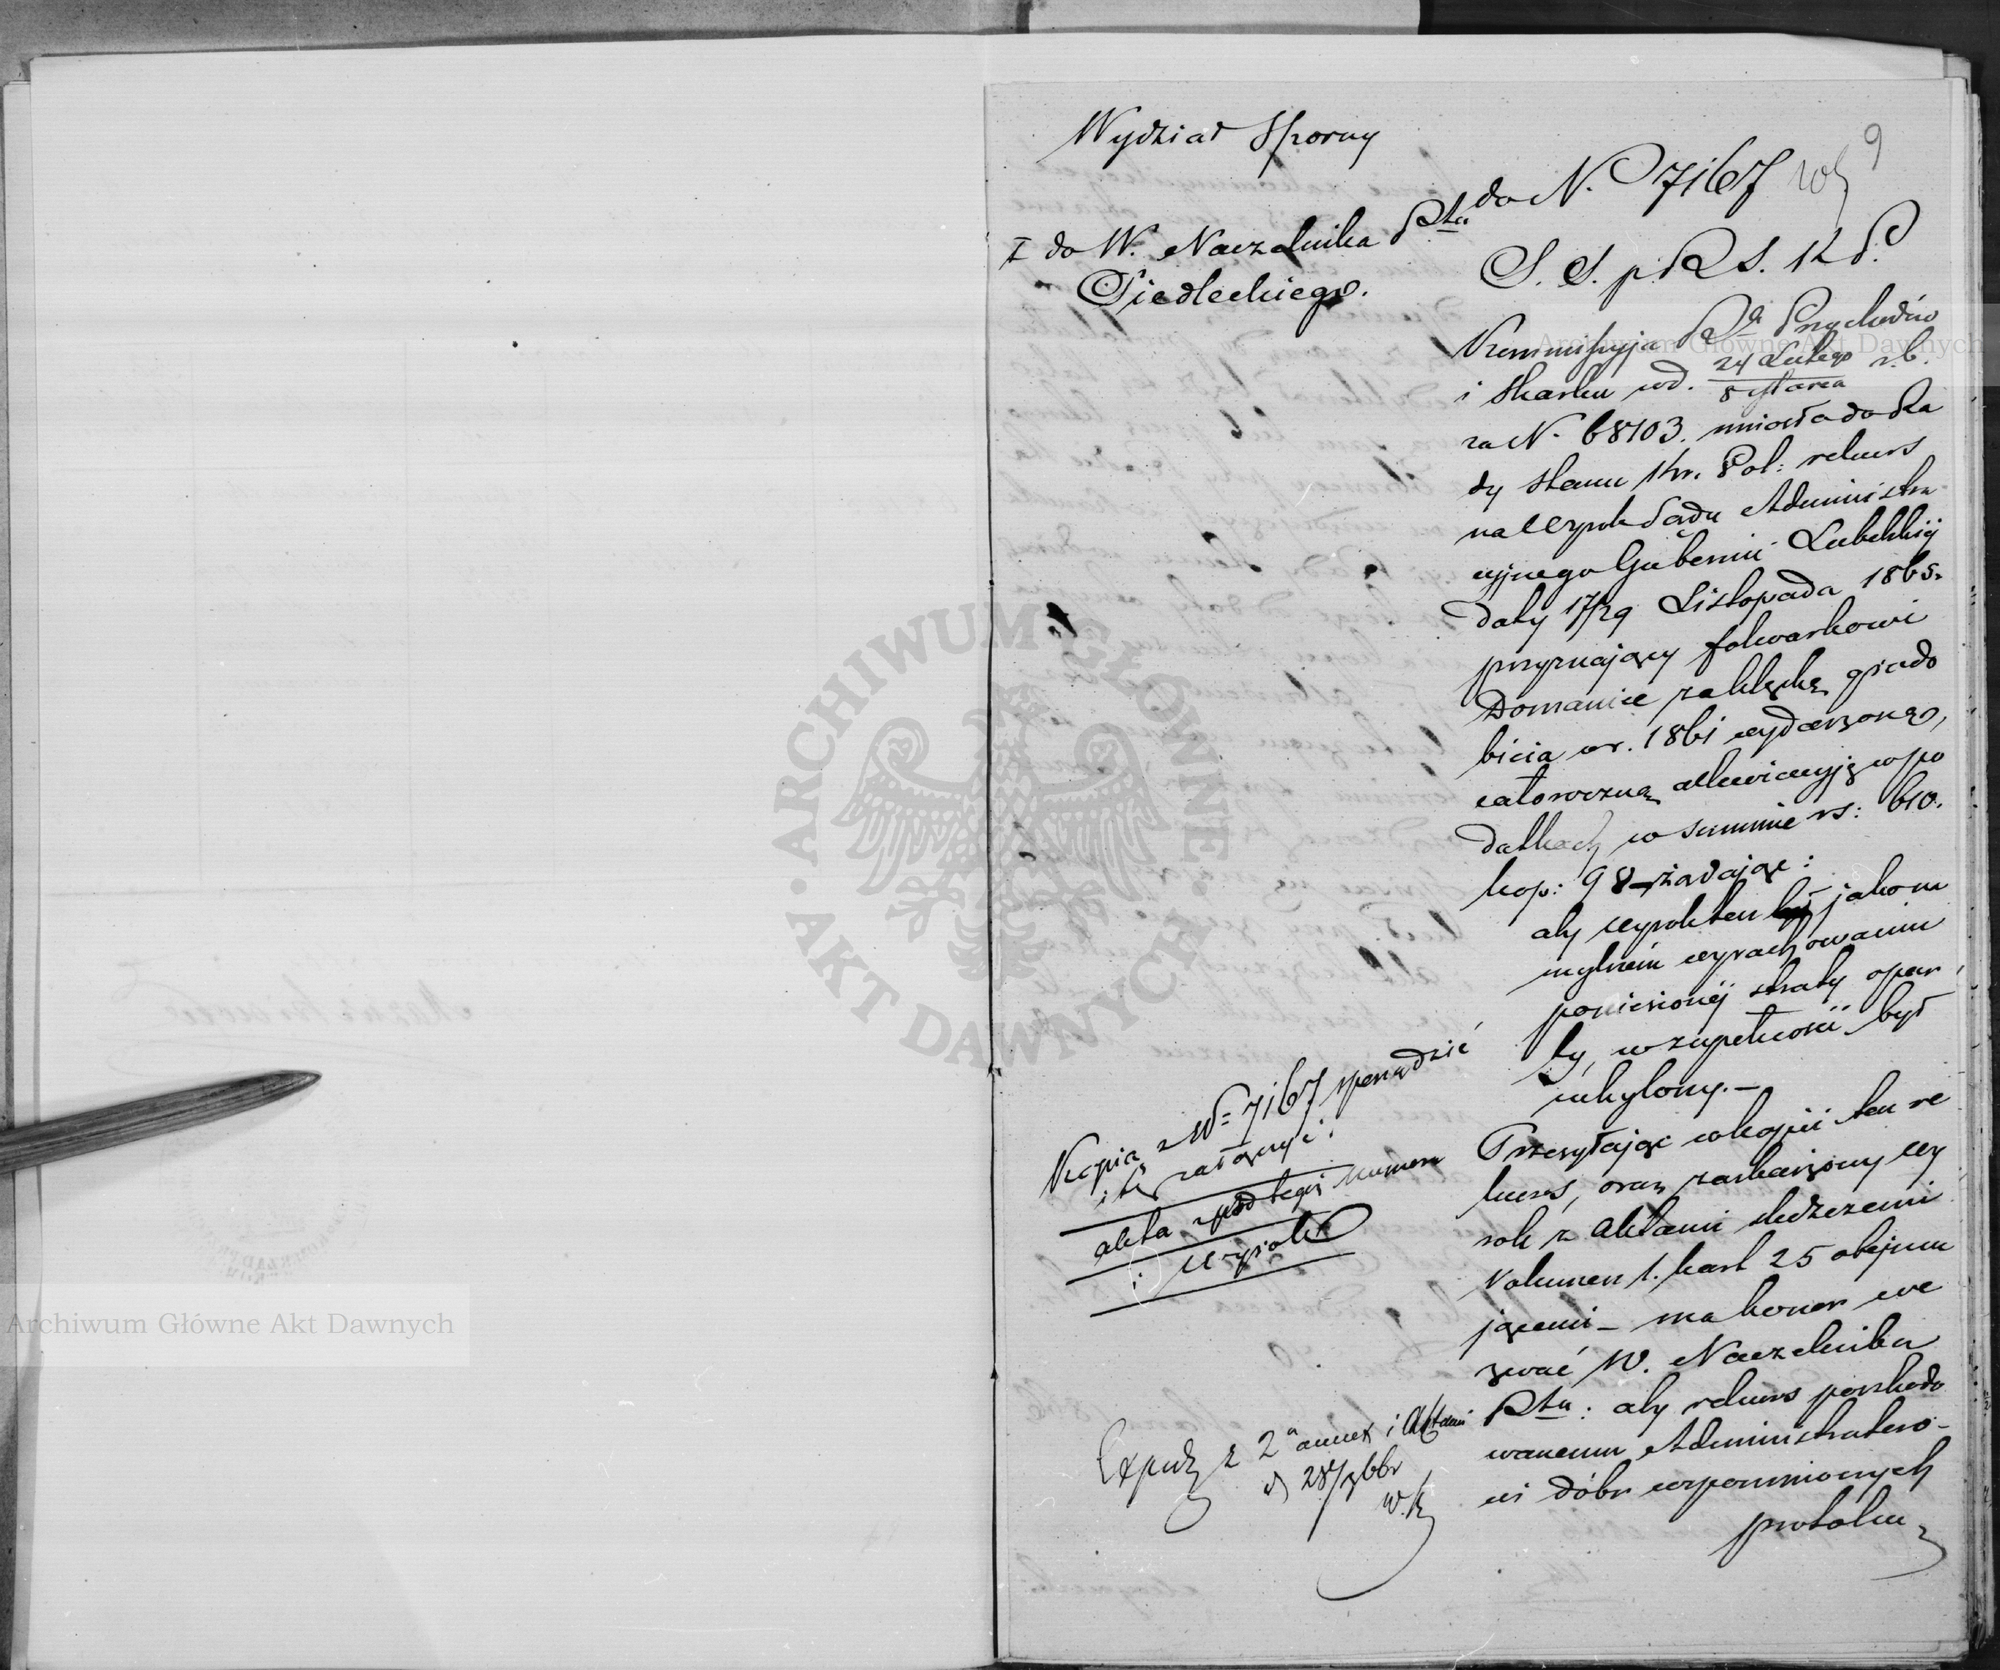 9
Wydział Sporny
do N. 7167
I do W. Naczelnika Ptu
Siedleckiego.
S. S. p. R. S. K. P.
Kommissyja Rda Przychodów
i Skarbu w d. 24 Lutego / 8 Marca r.b.
za N. 68103. wniosła do Ra
dy Stanu Kr. Pol: rekurs
na Wyrok Sądu Administra
cyjnego Gubernii Lubelskiej
daty 17/29 Listopada 1865.
przyznający folwarkowi
Domanice za klęskę grado
bicia w r. 1861 wydarzoną,
całoroczną allewiacyję w po
datkach w summie rs: 610.
kop: 98 żądając:
aby wyrok ten jako na
mylném wyrachowaniu
poniesionéj straty opar
ty, w zupełności był
uchylony.—
Przesyłając w kopii ten re
kurs, oraz zaskarżony wy
rok z Aktami śledczemi
Volumen 1. kart 25 obejmu
jącemi – ma honor we
zwać W. Naczelnika
Ptu: aby rekurs poszkodo
wanemu Administratoro-
wi dóbr wspomnionych
protoku
Kopią z N= 7167 sporządzić
i tę załączyć.
akta z pod tegoż numeru
i wyrok
Exped z 2a annex i Aktami
d 28/7bbr
Archiwum Główne Akt Dawnych
Archiwum Główne Akt Dawnych
ARCHIWUM GŁÓWNE AKT DAWNYCH